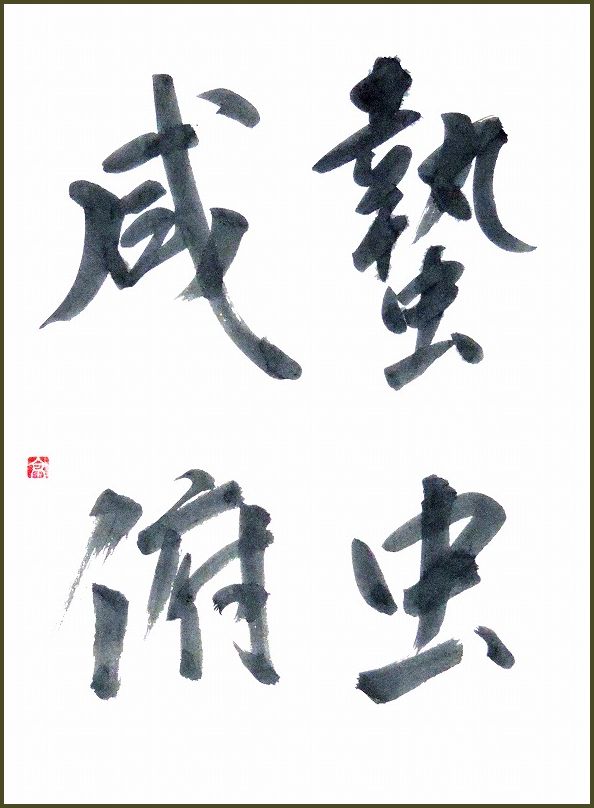 蟄虫
咸俯